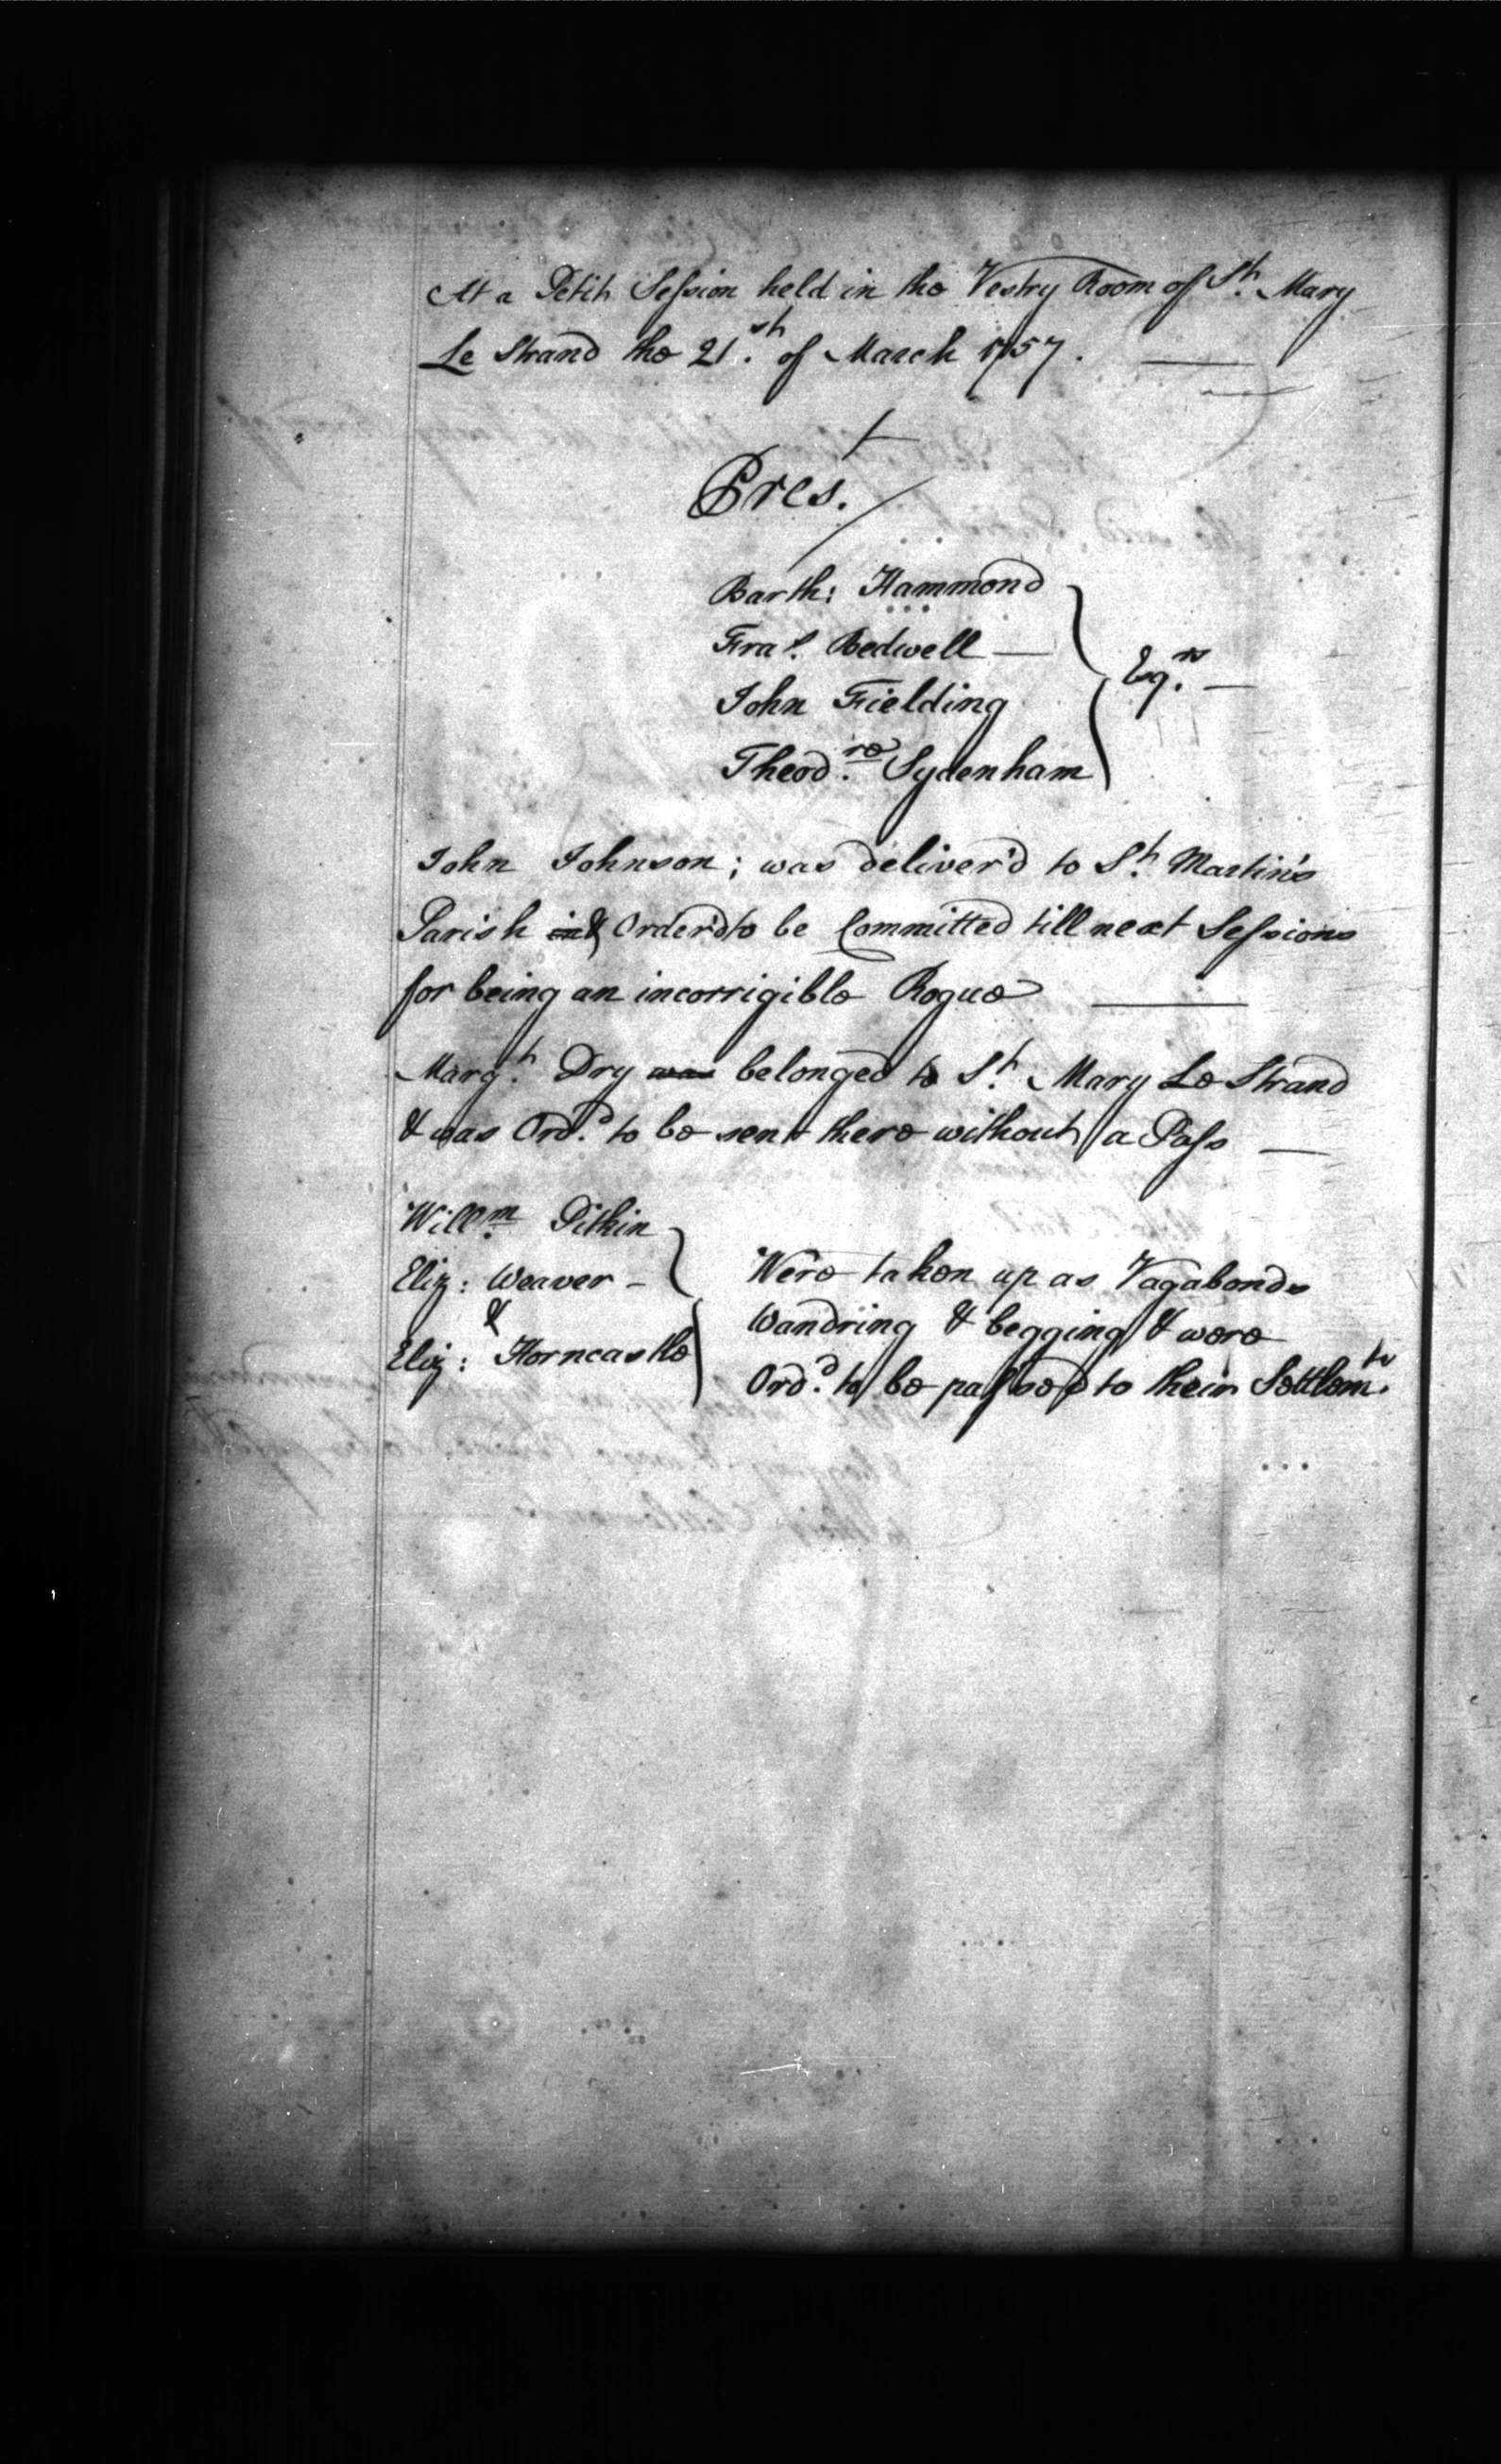 At a Petit Session held in the Vestry Room of St. Mary
Le Strand the 21.st of March 1757.
Prest.
Barth: Hammond
Fras. Bedwell —
John Fielding
Theod.re Sydenham
Esq.rs —
John Johnson; was deliver'd to St. Martin's
Parish in & Order'd to be Committed till next Sessions
for being an incorrigible Rogue
Margt. Dry was belonged to St. Mary Le Strand
& was Ord.d to be sent there without a Pass —
Will.m Pitkin
Eliz: Weaver –
&
Eliz: Horncastle
Were taken up as Vagabonds
Wandring & begging & were
Ord.d to be passed to their Settlem.ts